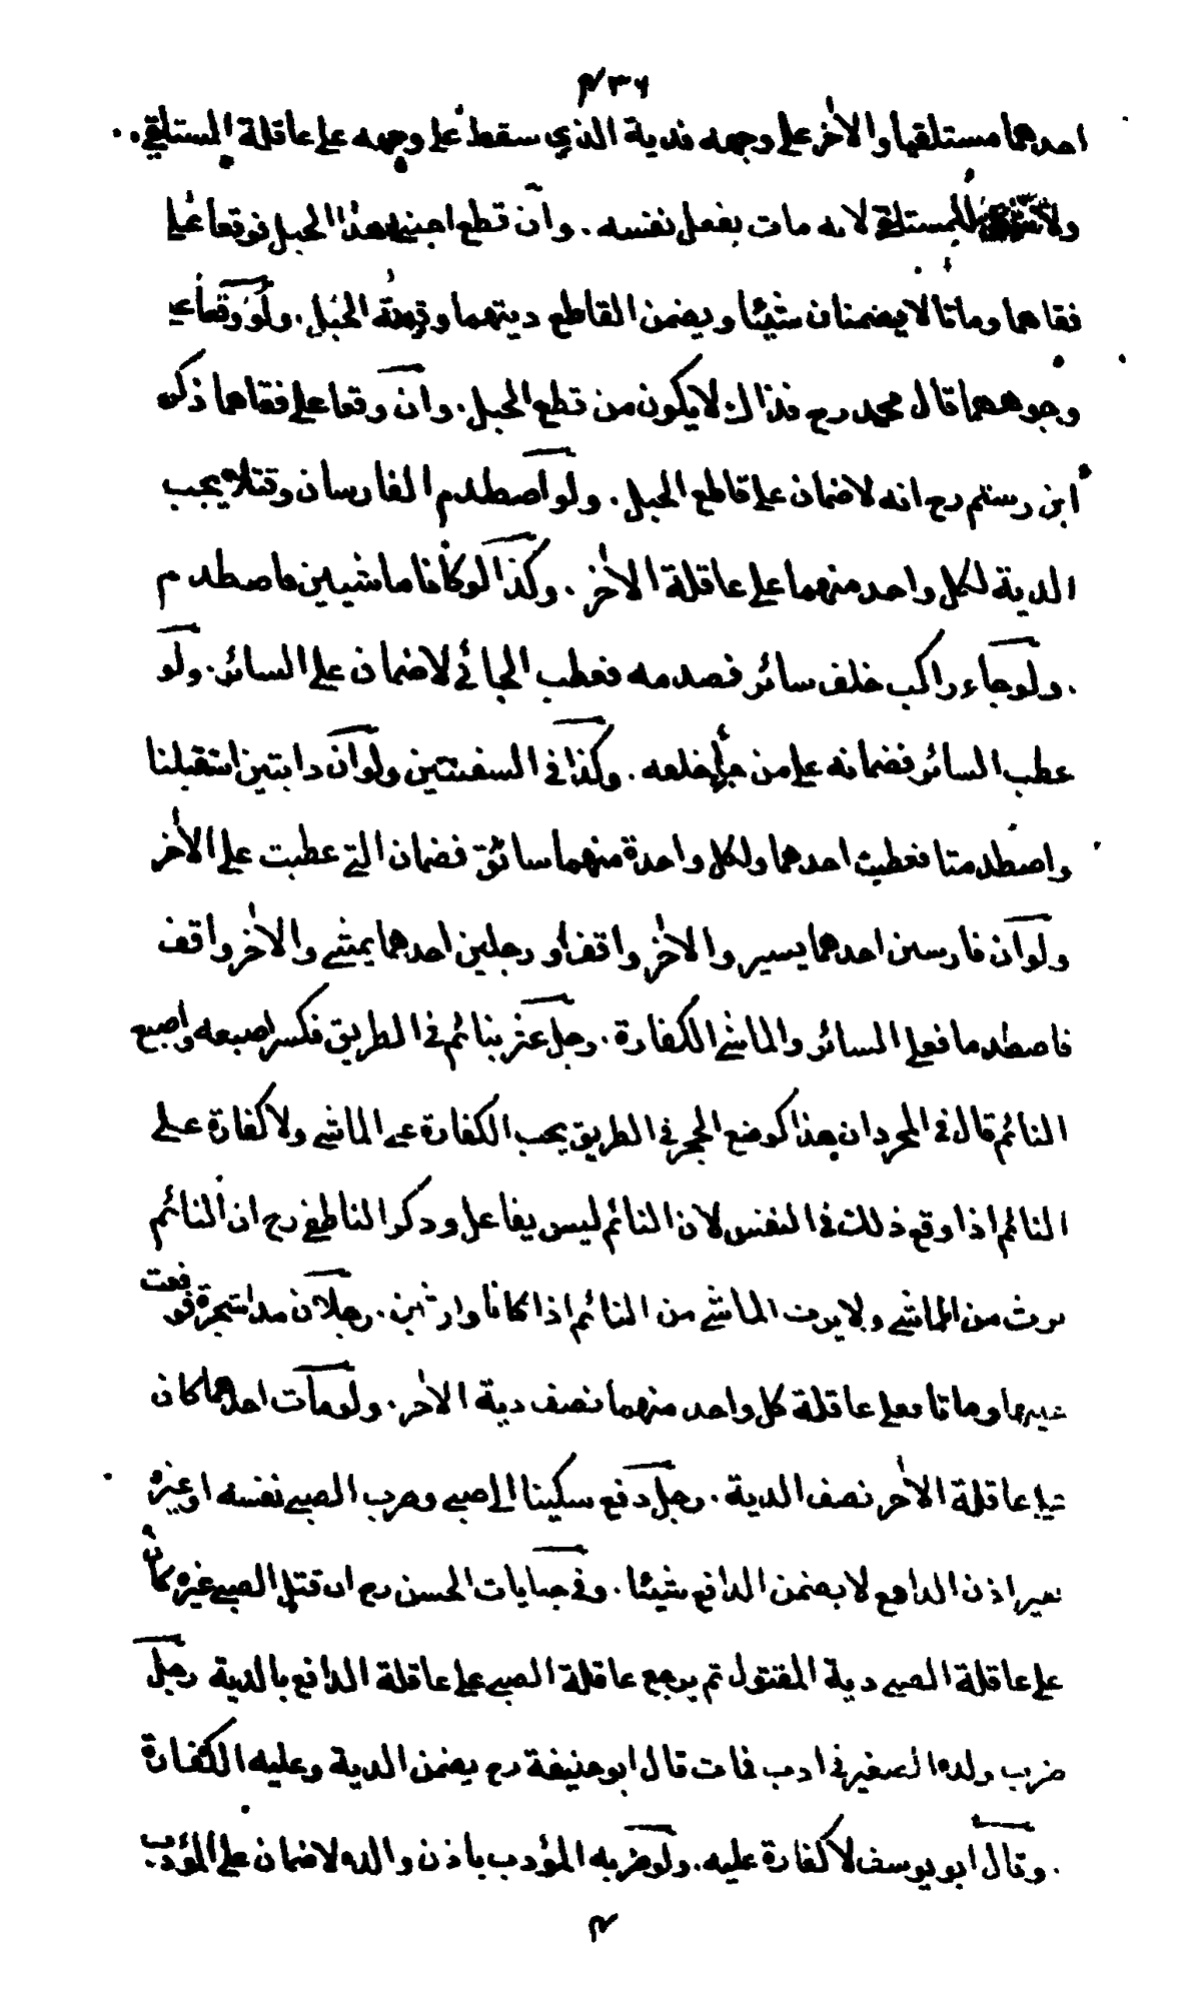 ٤٣٦
احدهما مستلقيا والاخر على وجهه فدية الذي سقط على وجهه على عاقلة المستلقي.
ولا للمستلقي لانه مات بفعل نفسه. وان قطع اجنبي هذا الحبل فوقعا على
فقاهما وماتا لا يضمنان شيئا ويضمن القاطع ديتهما وقيمة الحبل. ولو وقعا على
وجوههما قال محمد رح فذاك لا يكون من قطع الحبل. وان وقعا على فقاهما ذكر
ابن رستم رح انه لا ضمان على قاطع الحبل. ولو اصطدم الفارسان وقتلا يجب
الدية لكل واحد منهما على عاقلة الاخر. وكذا لو كانا ماشيين فاصطدم
. ولو جاء راكب خلف سائر فصدمه فعطب الجائي لا ضمان على السائر. ولو
عطب السائر فضمانه على من جاء خلفه. وكذا في السفينتين ولو ان دابتين استقبلتا
واصطدمتا فعطبت احدهما ولكل واحدة منهما سائق فضمان التي عطبت على الاخر
ولو ان فارسين احدهما يسير والاخر واقف او رجلين احدهما يمشي والاخر واقف
فاصطدما فعلى السائر والماشي الكفارة. رجل عثر بنائم في الطريق فكسر اصبعه واصبع
النائم قال في المجرد ان هذا كوضع الحجر في الطريق يجب الكفارة على الماشي ولا كفارة على
النائم اذا وقع ذلك في النفس لان النائم ليس بفاعل وذكر الناطفي رح ان النائم
يرث من الماشي ولا يرث الماشي من النائم اذا كانا وارثين. رجلان مدا شجرة فوقعت
عليهما وماتا فعلى عاقلة كل واحد منهما نصف دية الاخر. ولو مات احدهما كان
على عاقلة الاخر نصف الدية. رجل دفع سكينا الى صبي وضرب الصبي نفسه او غيره
بغير اذن الدافع لا يضمن الدافع شيئا. وفي جنايات الحسن رح ان قتل الصبي غيره كان
على عاقلة الصبي دية المقتول ثم يرجع عاقلة الصبي على عاقلة الدافع بالدية رجل
ضرب ولده الصغير في ادب فمات قال ابو حنيفة رح يضمن الدية وعليه الكفارة
. وقال ابو يوسف لا كفارة عليه. ولو ضربه المؤدب باذن والده لا ضمان على المؤدب